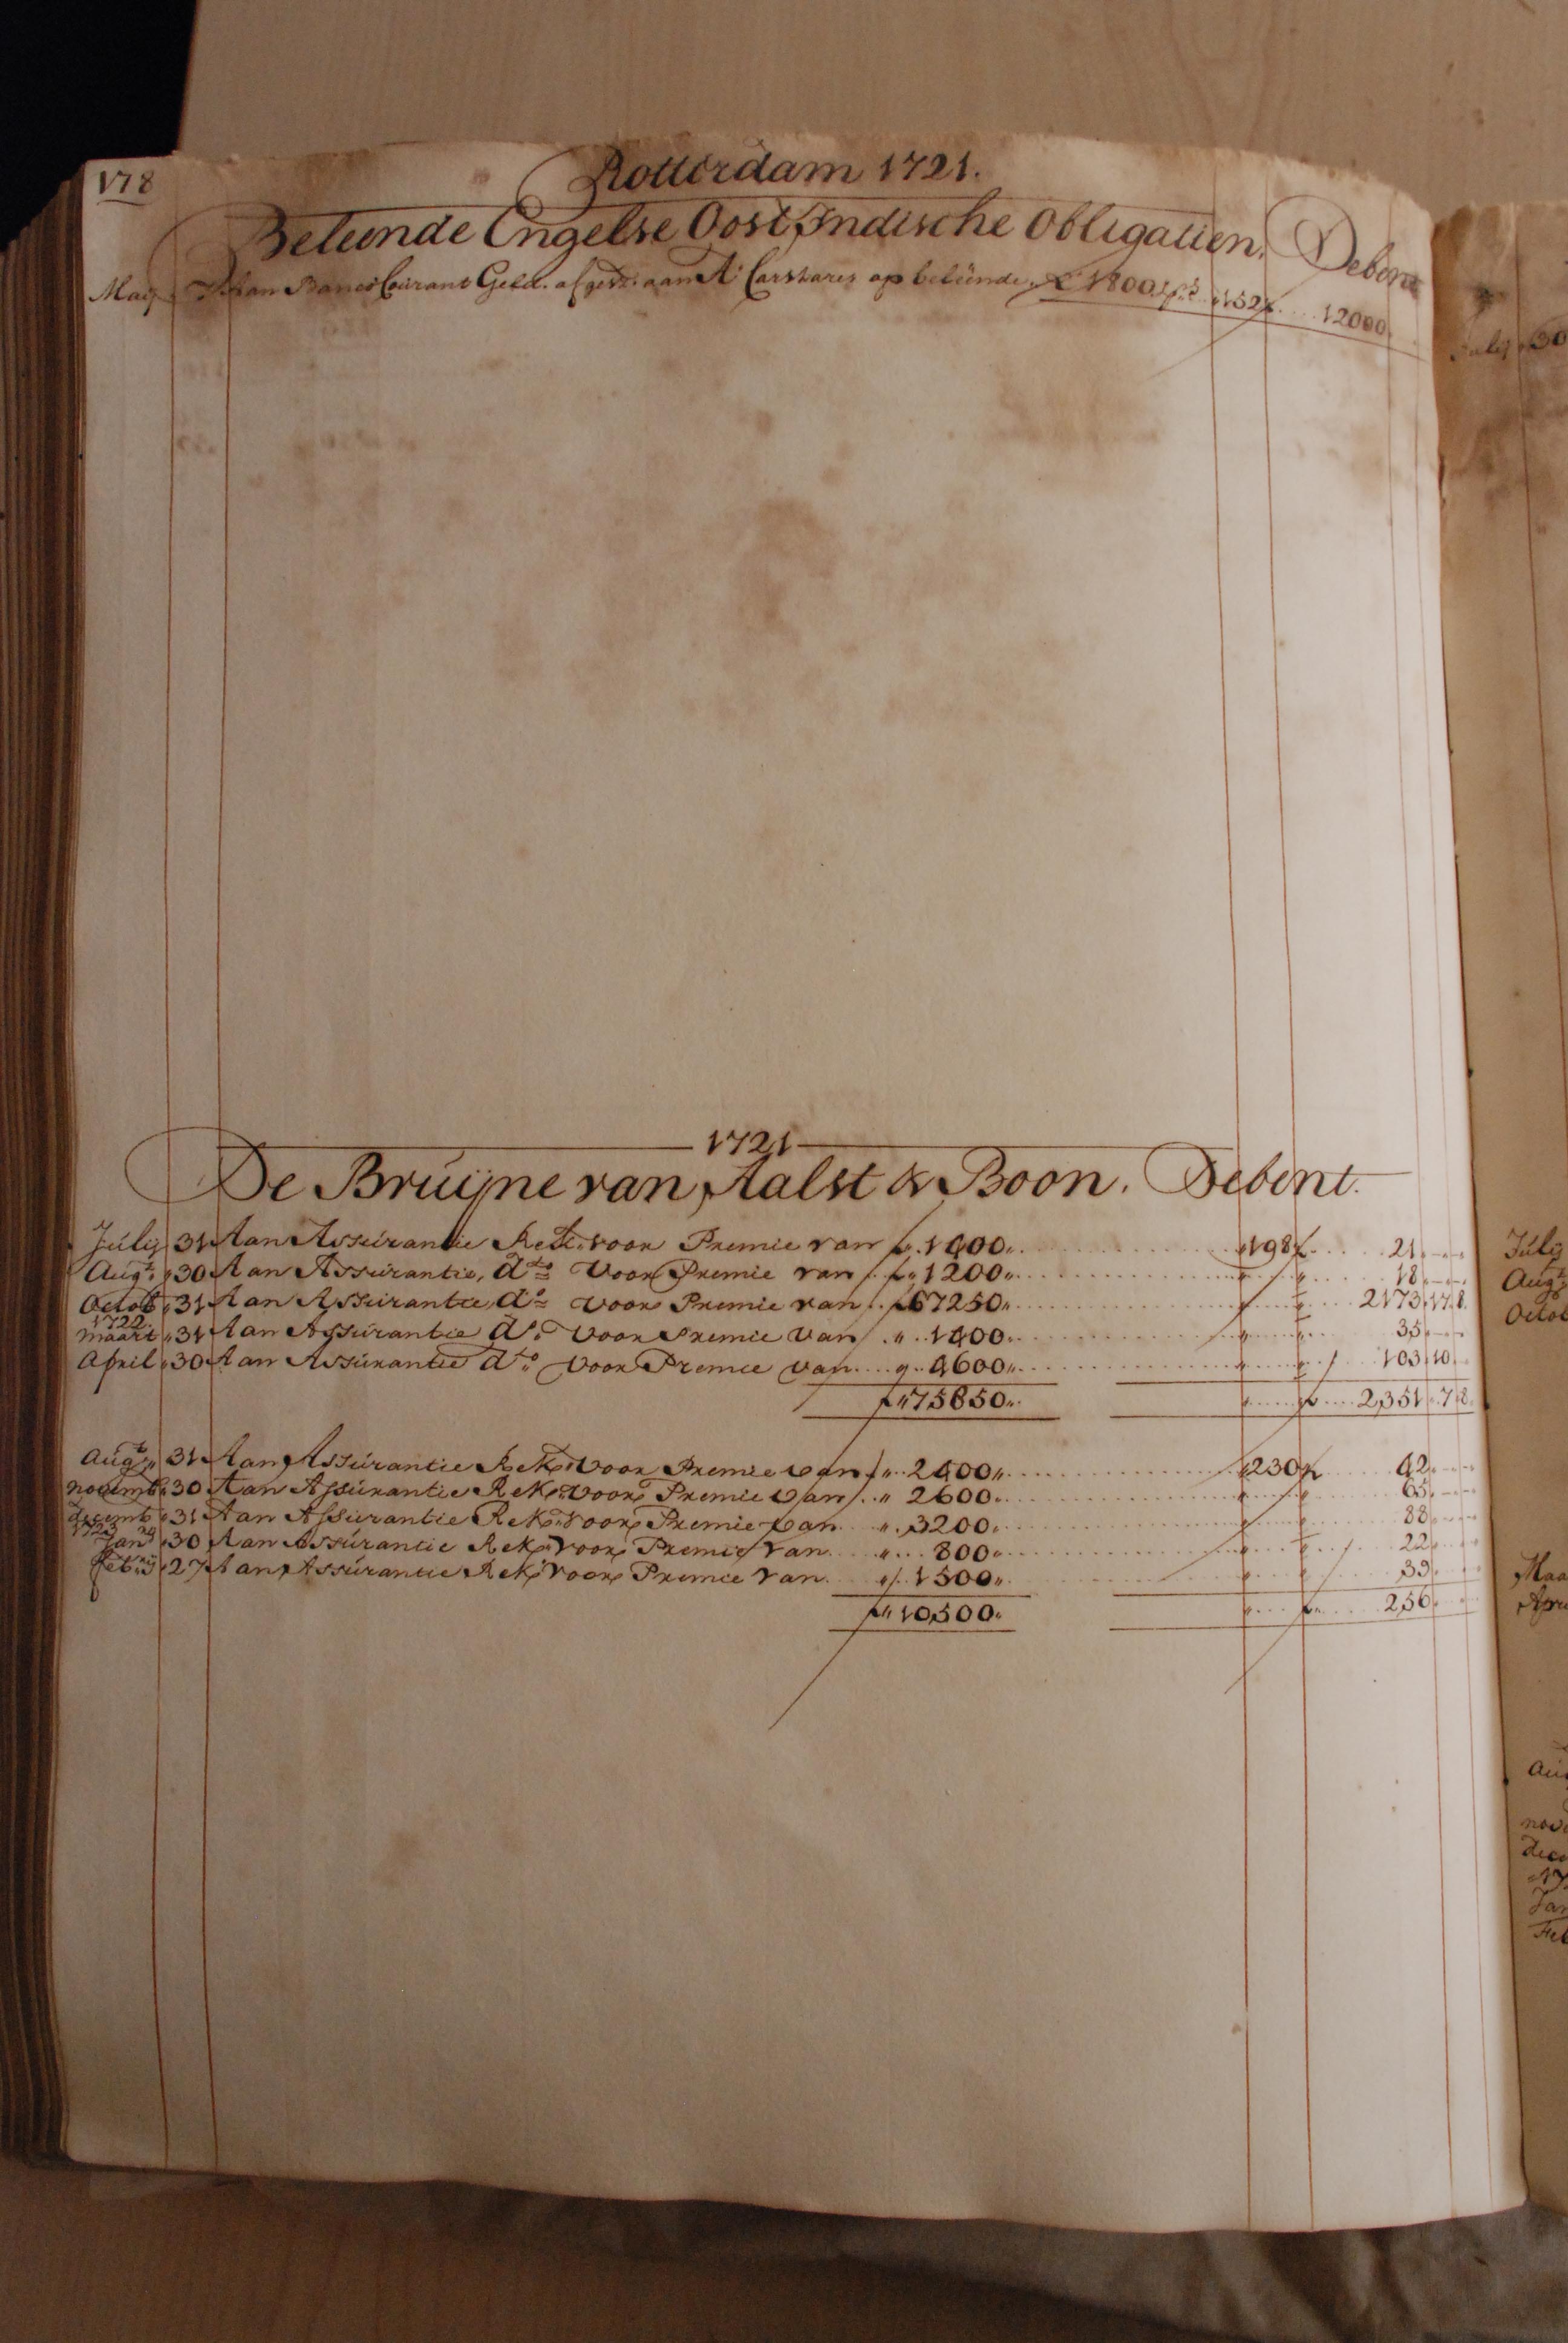 178
Rotterdam 1721.
Beleende Engelse Oost Indische Obligatien. Debent
Maij Aan Banco Courant Geld. afgest. aan A. Carstares op beleende £ 1800 152 f 12000
1721
De Bruijne van Aalst & Boon. Debent.
Julij 31 Aan Assúrantie Rek. voor Premie van f 1400 198 f 21
Augt. 30 Aan Assurantie, dto voor Premie van f 1200 " " 18
Octob 31 Aan Assúrantie do voor Premie van f 67250 " " 2173 17 8
1722
maart 31 Aan Assúrantie do voor Premie van " 1400 " " 35
April 30 Aan Assúrantie dto voor Premie van " 4600 " " 103 10
f 75850 " f 2351 7 8
Augt. 31 Aan Assúrantie Rek. voor Premie van f 2400 230 f 42
novemb 30 Aan Assúrantie Rek. voor Premie van " 2600 " " 65
decemb 31 Aan Assúrantie Rek. voor Premie van " 3200 " " 88
1723
Janry 30 Aan Assúrantie Rek. voor Premie van " 800 " " 22
febrij 27 Aan Assúrantie Rek. voor Premie van " 1500 " " 39
f 10500 " f 256
Julij 30
Julij
Augt
Octob
Maa
Apri
Aug
nov
Dec
Jan
Feb